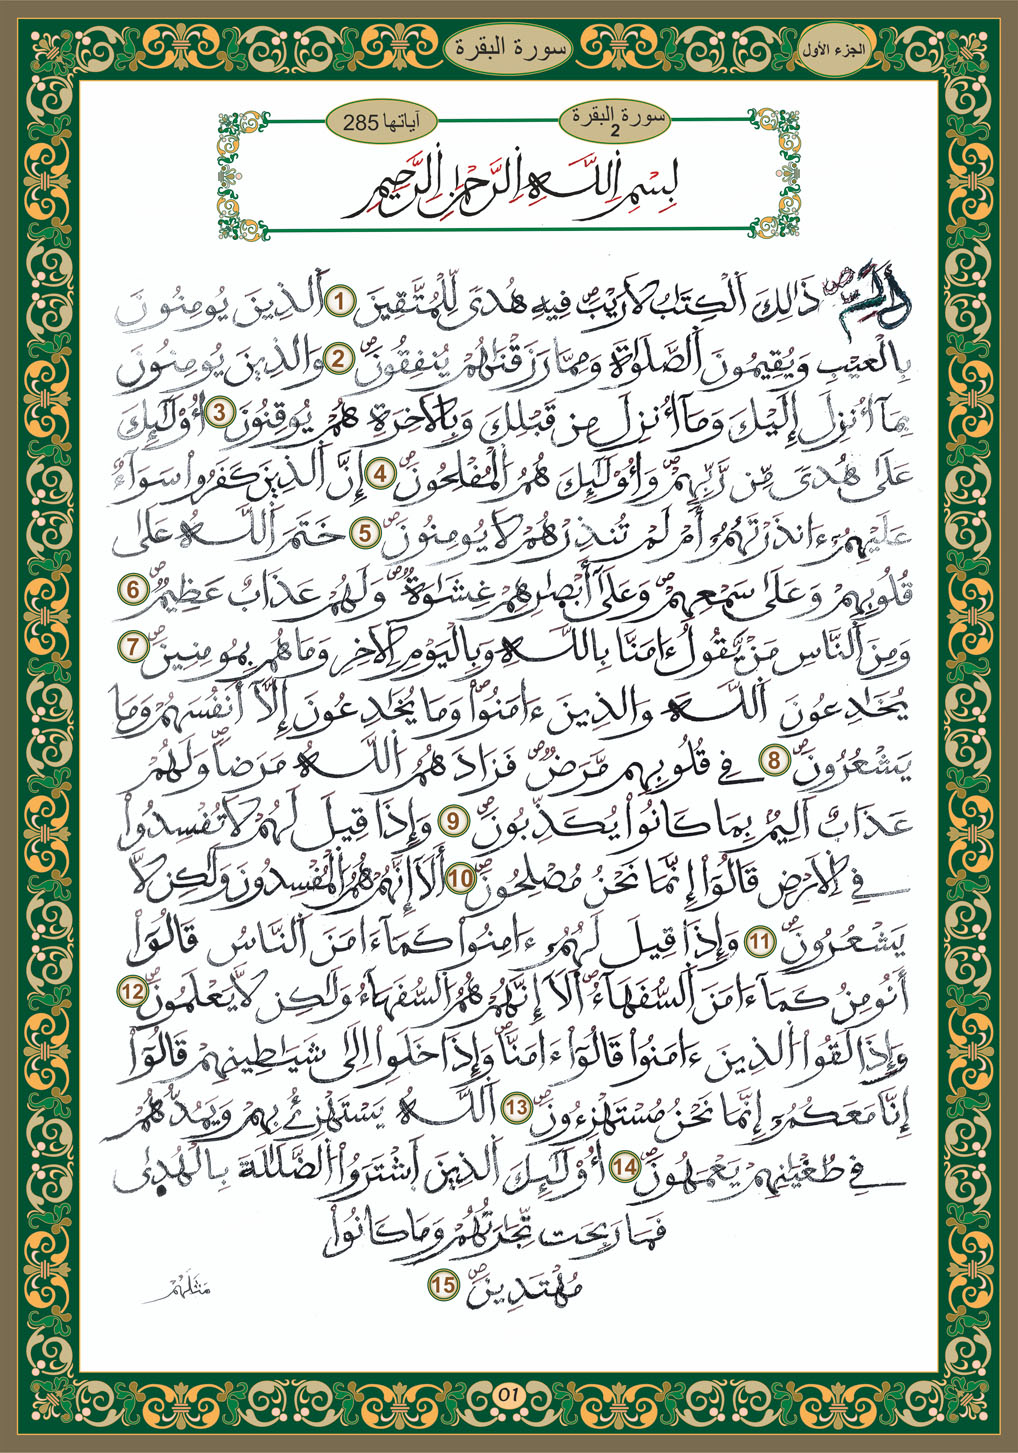 الجزء الأول
سورة البقرة
سورة البقرة
2
آياتها 285
بِسْمِ اِللَّهِ اِلرَّحْمَٰنِ اِلرَّحِيمِ
أَلَٓمِّٓۖ ذَٰلِكَ اَلْكِتَٰبُ لَا رَيْبَۖ فِيهِ هُدىً لِّلْمُتَّقِينَ 1 اَلذِينَ يُومِنُونَ
بِالْغَيْبِ وَيُقِيمُونَ اَلصَّلَوٰةَ وَمِمَّا رَزَقْنَٰهُمْ يُنفِقُونَۖ 2 وَالذِينَ يُومِنُونَ
بِمَآ أُنزِلَ إِلَيْكَ وَمَآ أُنزِلَ مِن قَبْلِكَ وَبِالَاخِرَةِ هُمْ يُوقِنُونَۖ 3 أُوْلَٰٓئِكَ
عَلَىٰ هُدىً مِّن رَّبِّهِمْۖ وَأُوْلَٰٓئِكَ هُمُ اُلْمُفْلِحُونَۖ 4 إِنَّ اَلذِينَ كَفَرُواْ سَوَآءٌ
عَلَيْهِمُۥٓ ءَآنذَرْتَهُمُۥٓ أَمْ لَمْ تُنذِرْهُمْ لَا يُومِنُونَۖ 5 خَتَمَ اَللَّهُ عَلَىٰ
قُلُوبِهِمْ وَعَلَىٰ سَمْعِهِمْۖ وَعَلَىٰٓ أَبْصَٰرِهِمْ غِشَٰوَةٌۖ وَلَهُمْ عَذَابٌ عَظِيمٌۖ 6
وَمِنَ اَلنَّاسِ مَنْ يَّقُولُ ءَامَنَّا بِاللَّهِ وَبِالْيَوْمِ اِلَاخِرِ وَمَا هُم بِمُومِنِينَۖ 7
يُخَٰدِعُونَ اَللَّهَ وَالذِينَ ءَامَنُواْۖ وَمَا يُخَٰدِعُونَ إِلَّآ أَنفُسَهُمْ وَمَا
يَشْعُرُونَۖ 8 فِے قُلُوبِهِم مَّرَضٌۖ فَزَادَهُمُ اَللَّهُ مَرَضاًۖ وَلَهُمْ
عَذَابٌ اَلِيمٌۢ بِمَا كَانُواْ يُكَذِّبُونَۖ 9 وَإِذَا قِيلَ لَهُمْ لَا تُفْسِدُواْ
فِے اِلَارْضِ قَالُوٓاْ إِنَّمَا نَحْنُ مُصْلِحُونَۖ 10 أَلَآ إِنَّهُمْ هُمُ اُلْمُفْسِدُونَ وَلَٰكِن لَّا
يَشْعُرُونَۖ 11 وَإِذَا قِيلَ لَهُمُۥٓ ءَامِنُواْ كَمَآ ءَامَنَ اَلنَّاسُ قَالُوٓاْ
أَنُومِنُ كَمَآ ءَامَنَ اَلسُّفَهَآءُۖ أَلَآ إِنَّهُمْ هُمُ اُلسُّفَهَآءُ وَلَٰكِن لَّا يَعْلَمُونَۖ 12
وَإِذَا لَقُواْ اُلذِينَ ءَامَنُواْ قَالُوٓاْ ءَامَنَّاۖ وَإِذَا خَلَوِاْ اِلَىٰ شَيَٰطِينِهِمْ قَالُوٓاْ
إِنَّا مَعَكُمُۥٓ إِنَّمَا نَحْنُ مُسْتَهْزِءُونَۖ 13 اَللَّهُ يَسْتَهْزِئُ بِهِمْ وَيَمُدُّهُمْ
فِے طُغْيَٰنِهِمْ يَعْمَهُونَۖ 14 أُوْلَٰٓئِكَ اَلذِينَ اَشْتَرَوُاْ اُلضَّلَٰلَةَ بِالْهُدَىٰ
فَمَا رَبِحَت تِّجَٰرَتُهُمْ وَمَا كَانُواْ
مُهْتَدِينَۖ 15
مَثَلُهُمْ
01